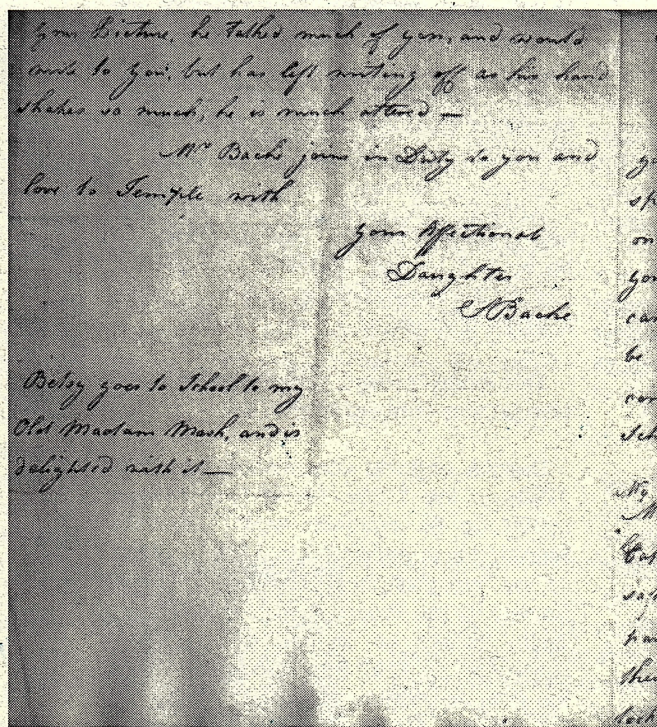 your Picture, he talked much of you, and would
write to you, but has left writing off as his hand
shakes so much, he is much altered —
Mr Bache joins in Duty to you and
love to Temple with
your Affectionat
Daughter
SBache
Betsy goes to School to my
Old Madam Mash, and is
delighted with it —
yo
sp
on
you
can
be
con
Sch
My
M
sa
pa
the
look